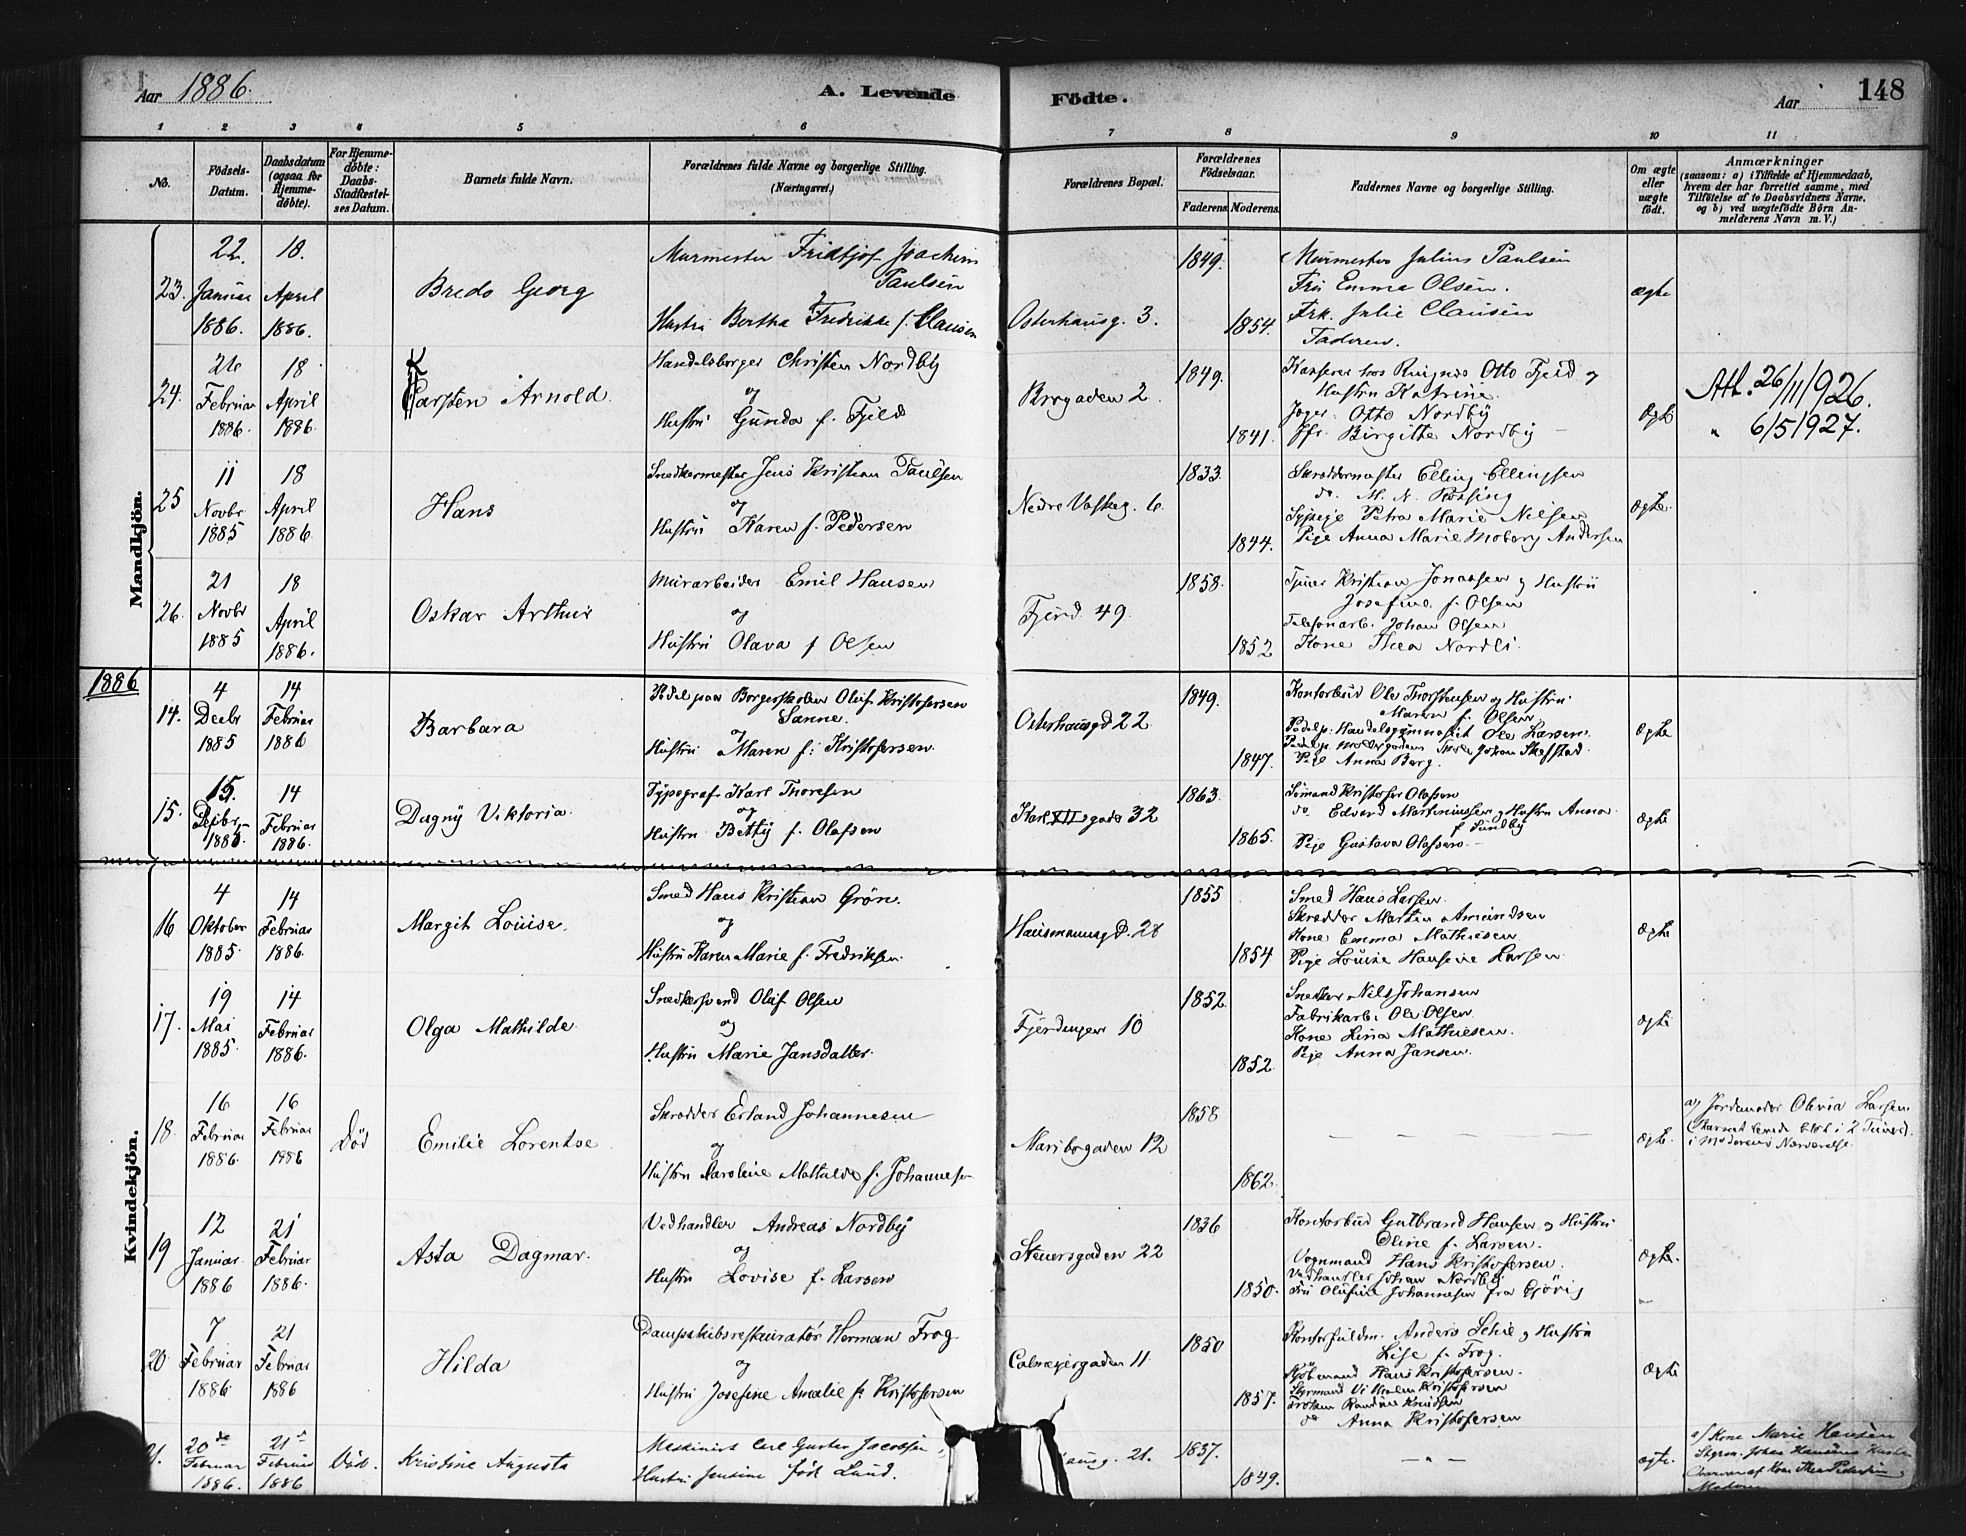 Aar 1886. A. Levende Födte. Aar 148
1 2 3 4 5 6 7 8 9 10 11
No.
Födsels-
Datum.
Daabsdatum
(ogsaa for
Hjemme-
döbte).
For Hjemme-
döbte:
Daabs-
Stadfæstel-
ses Datum.
Barnets fulde Navn.
Forældrenes fulde Navne og borgerlige Stilling.
(Næringsvei.)
Forældrenes Bopæl.
Forældrenes
Födselsaar.
Faderens. Moderens.
Faddernes Navne og borgerlige Stilling.
Om ægte
eller
uægte
födt.
Anmærkninger
(saasom: a) i Tilfælde af Hjemmedaab,
hvem der har forrettet samme, med
Tilföielse af to Daabsvidners Navne,
og b) ved uægtefödte Börn An-
melderens Navn m. V.)
Mandkjön.
23.
22.
Januar
1886.
18.
April
1886.
Bredo Georg
Murmester Fridtjof Joachim
Paulsen
og
Hustru Bertha Fredrikke f. Clausen
Osterhausg. 3.
1849.
1854.
Murmester Julius Paulsen
Fru Emma Olsen.
Frk. Julie Clausen
Faderen.
ægte
24.
26
Februar
1886.
18
April
1886.
Karsten Arnold.
Handelsborger Christen Nordby
og
Hustru Gunda f. Fjeld
Brogaden 2.
1849.
1841.
Kasserer hos Ringnes Otto Fjeld og
Hustru Katrine.
Jæger. Otto Nordby
Jfr. Birgitte Nordby
ægte
Att. 26/11/926.
" 6/5/927.
25
11
Novbr
1885
18
April
1886.
Hans
Snedkermester Jens Kristian Paulsen
og
Hustru Karen f. Pedersen
Nedre Vaskeg. 6.
1833.
1844.
Skræddermester Elling Ellingsen
do. M. N. Rossing
Sypige Petra Marie Nilsen
Pige Anna Marie Moberg Andersen
ægte.
26.
21
Novbr
1885
18
April
1886.
Oskar Arthur
Murarbeider Emil Hansen
og
Hustru Olava f Olsen
Fjerd. 49.
1858.
1852
Tjener Kristian Jonassen og Hustru
Josefine f. Olsen
Telefonarb. Johan Olsen
Kone Thea Nordli.
1886
14.
4
Decbr
1885
14
Februar
1886
Barbara
Pedel paa Borgerskolen Oluf Kristofersen
Sanne.
og
Hustru Maren f. Kristofersen.
Osterhausgd 22
1849.
1847.
Kontorbud Ole Thorstensen og Hustru
Maren f. Olsen
Pedel p. Handelsgymnasiet Ole Larsen.
Pige Anna Berg.
ægte
15.
15.
Decbr.
1885.
14
Februar
1886.
Dagny Viktoria.
Typograf Karl Thoresen
og
Hustru Betty f. Olafsen
Karl XII's gade 32
1863.
1865.
Sömand Kristofer Olafsen
do Edvard Martiniussen og Hustru Anna
f Sundby
Pige Gustava Olafsen.
ægte
Kvindekjön.
16
4
Oktober
1885.
14
Februar
1886.
Margit Louise.
Smed Hans Kristian Grön.
og
Hustru Karen Marie f. Fredriksen.
Hausmannsgd. 28
1855
1854
Smed Hans Larsen.
Skrædder Martin Amundsen
Kone Emma Mathiesen.
Pige Louise Hansine Larsen.
ægte
17.
19
Mai
1885.
14
Februar
1886.
Olga Mathilde.
Snedkersvend Oluf Olsen
og
Hustru Marie Jansdatter.
Fjerdingen 10
1852.
1852.
Snedker Nils Johansen
Fabrikarb. Ole Olsen
Kone Lina Mathiesen.
Pige Anna Jansen.
ægte
18.
16
Februar
1886.
16
Februar
1886
Död
Emilie Lorentse
Skrædder Erland Johannesen
og
Hustru Karoline Mathilde f. Johannesen
Maribogaden 12
1858
1862.
ægte.
a) Jordemoder Olivia Larsen
Barnet levede blot i 2 Timer.
i Moderens Nærværelse.
19
12
Januar
1886
21
Februar
1886.
Asta Dagmar.
Vedhandler Andreas Nordby
og
Hustru Lovise f. Larsen
Stenersgaden 22
1836
1850.
Kontorbud Gulbrand Hansen og Hustru
Oline f. Larsen.
Vognmand Hans Kristofersen.
Vedhandler Johan Nordby
Fru Olufine Johannesen fra Gjövig
ægte.
20
7
Februar
1886.
21
Februar
1886
Hilda
Dampskibsrestauratör Herman Frog
og
Hustru Josefine Amalie f. Kristofersen
Calmeyergaden 11
1850
1857.
Kontorfuldm. Anders Schie og Hustru
Lise f. Frog.
Kjöbmand Hans Kristofersen.
Styrmand Vilhelm Kristofersen
Fröken Randine Knudsen
do Anna Kristofersen
ægte
21.
20de
Februar
1886.
21de
Februar
1886
Död.
Kristine Augusta
Maskinist Carl Gustav Jacobsen
Hustru Jensine född Lund.
ausg. 21.
1837.
1849.
– " –
ægte.
a) Kone Marie Hansen
Moderen